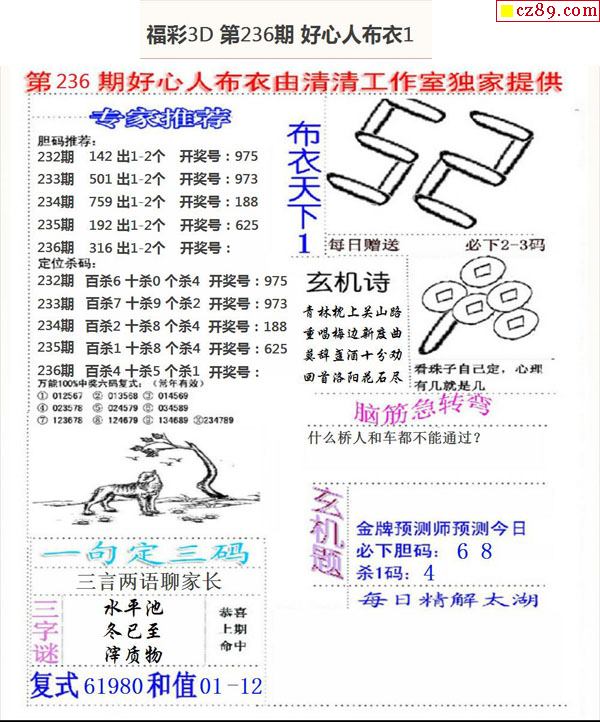 cz89.com
福彩3D 第236期 好心人布衣1
第236期好心人布衣由清清工作室独家提供
专家推荐
胆码推荐:
232期 142 出1-2个 开奖号:975
233期 501 出1-2个 开奖号:973
234期 759 出1-2个 开奖号:188
235期 192 出1-2个 开奖号:625
236期 316 出1-2个 开奖号:
定位杀码:
232期 百杀6 十杀0 个杀4 开奖号:975
233期 百杀7 十杀9 个杀2 开奖号:973
234期 百杀2 十杀8 个杀4 开奖号:188
235期 百杀1 十杀8 个杀4 开奖号:625
236期 百杀4 十杀5 个杀1 开奖号:
万能100%中奖六码复式:(常年有效)
① 012567 ② 013568 ③ 014569
④ 023578 ⑤ 024579 ⑥ 034589
⑦ 123678 ⑧ 124679 ⑨ 134689 ⑩234789
布衣天下1
52
每日赠送 必下2-3码
玄机诗
青林枕上关山路
重唱梅边新度曲
莫辞盏酒十分劝
回首洛阳花石尽
看珠子自己定,心理
有几就是几
脑筋急转弯
什么桥人和车都不能通过?
玄机题
金牌预测师预测今日
必下胆码: 6 8
杀1码: 4
每日精解太湖
一句定三码
三言两语聊家长
三字谜
水平池
冬已至
滓质物
恭喜
上期
命中
复式 61980 和值 01-12